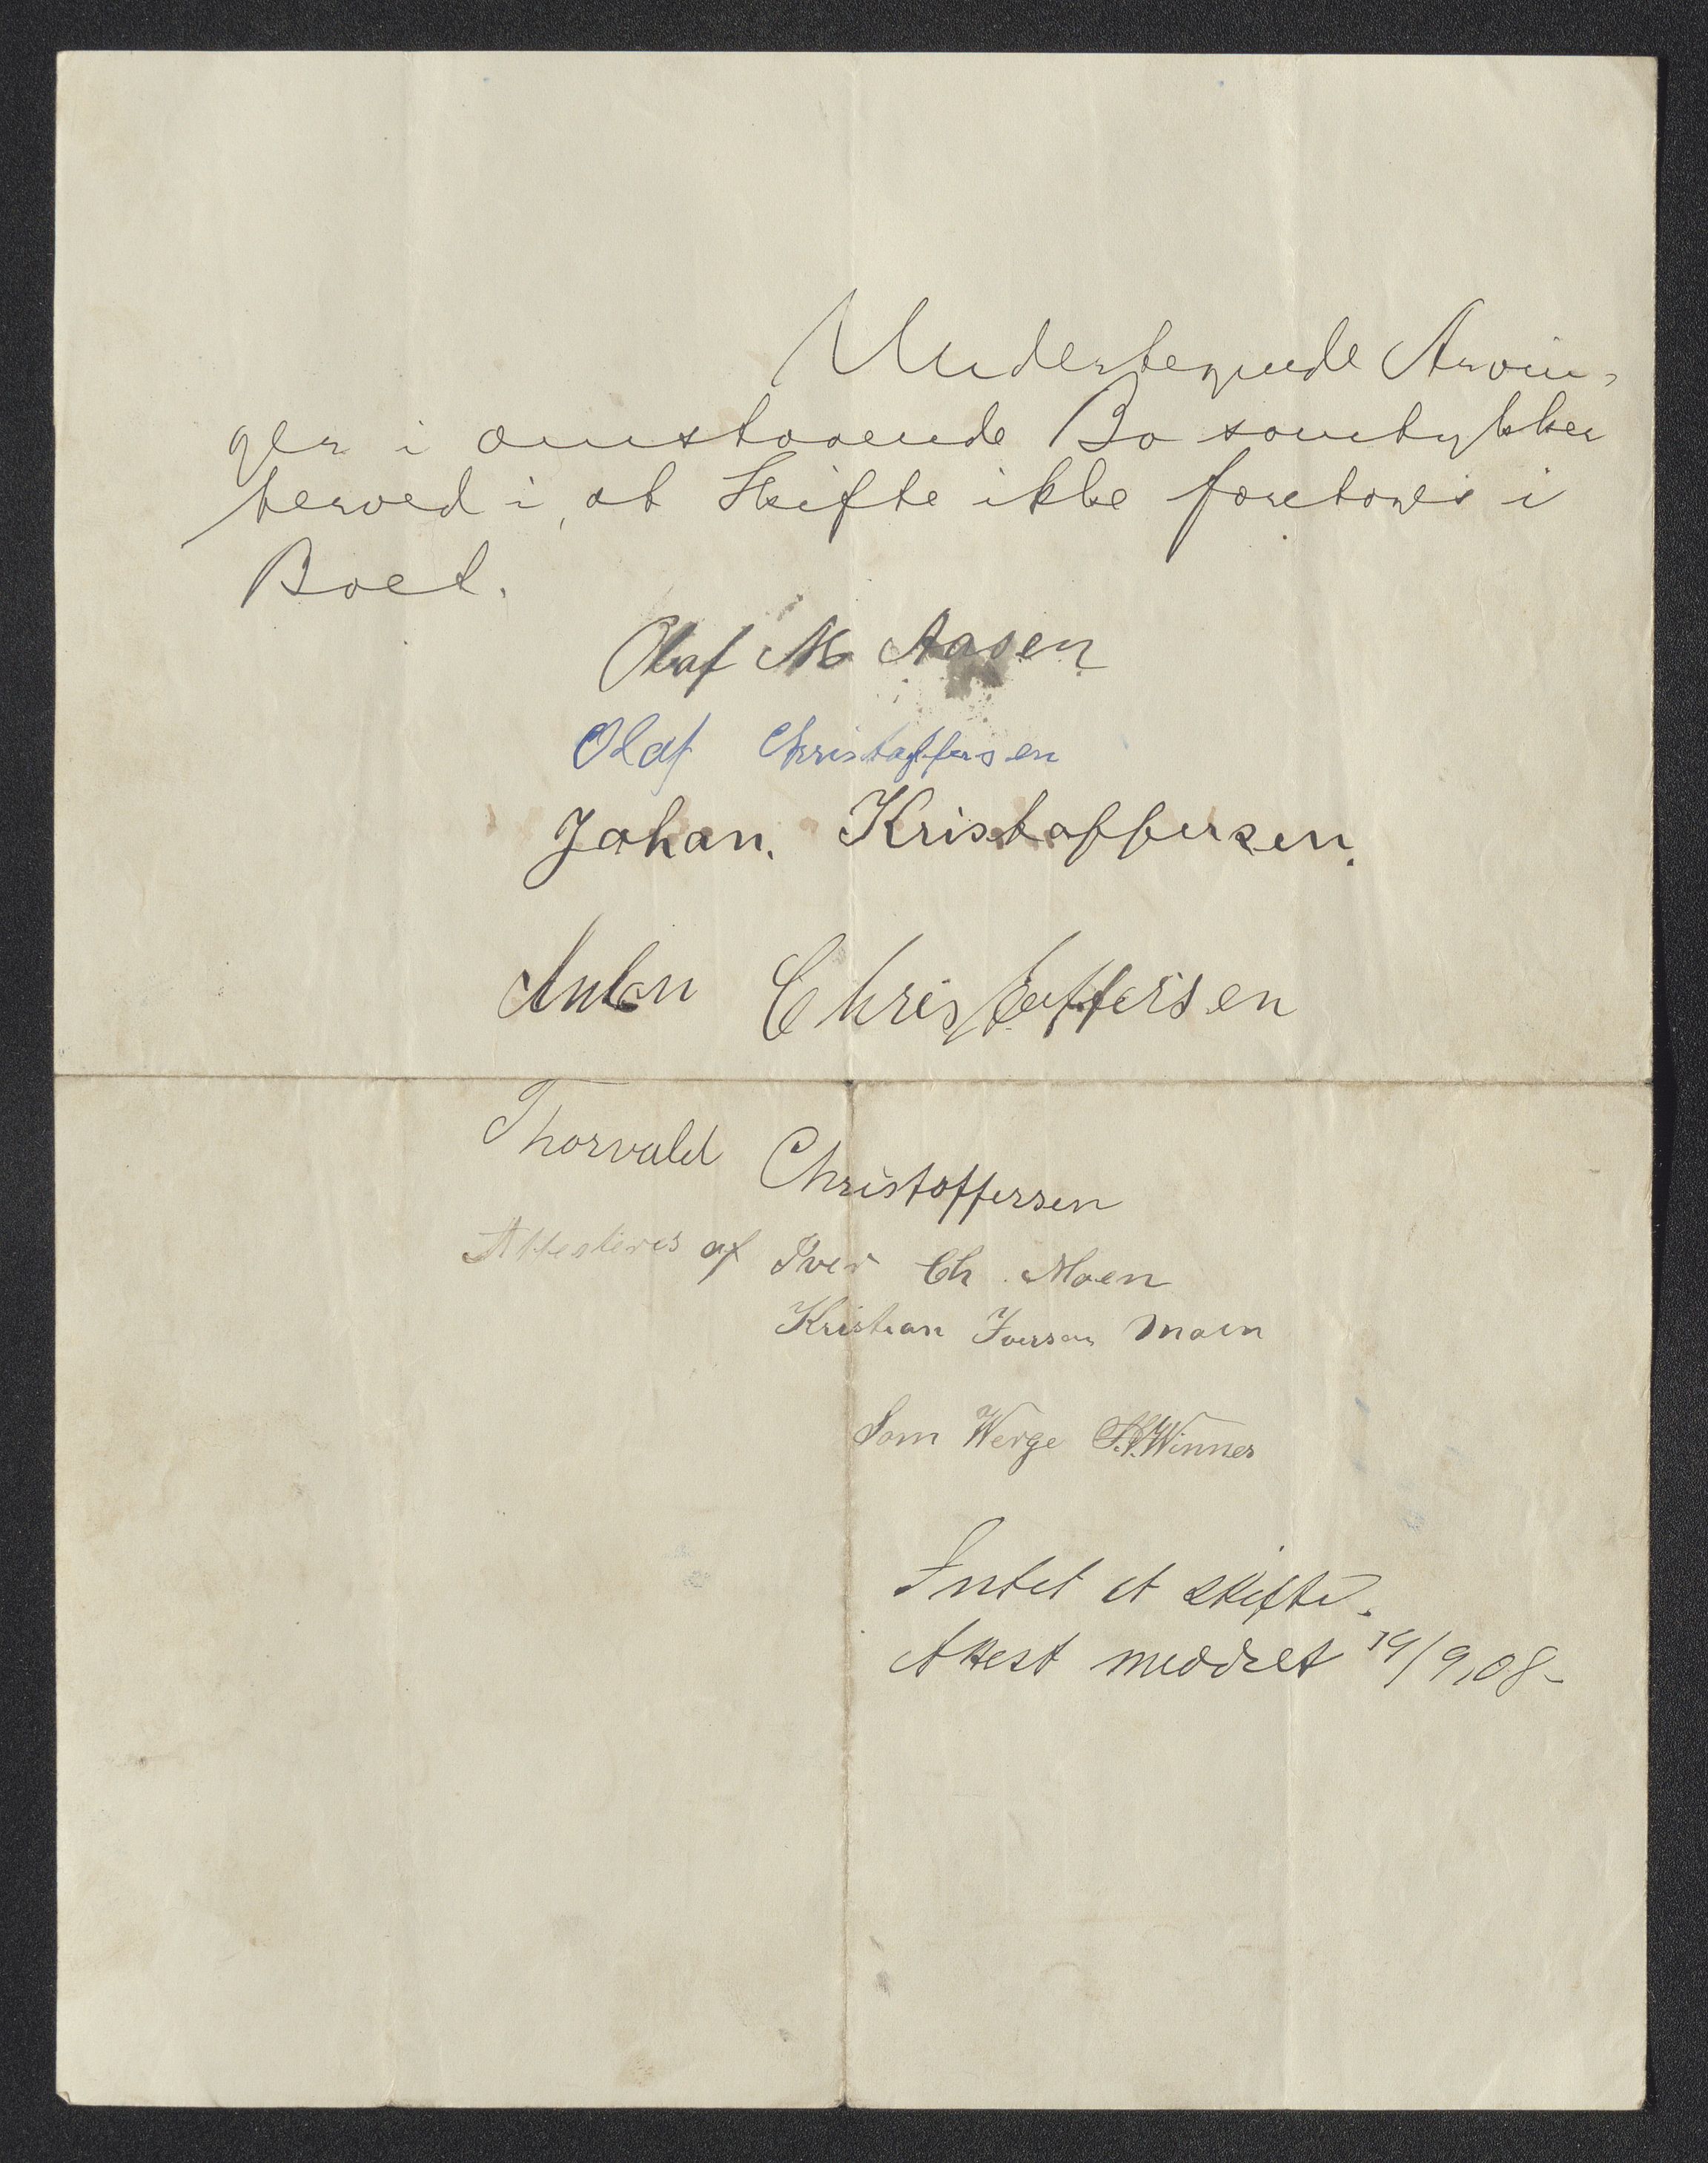 Undertegnede Arvin-
ger i omstaaende Bo samtykker
herved i, at Skifte ikke foretages i
Boet.
Olaf M Aasen
Olaf Christoffersen
Johan. Kristoffersen.
Anton Christoffersen
Thorvald Christoffersen
Attesteres af Iver Ch. Moen
Kristian Iversen Moen
Som Werge Winnes
Intet at skifte.
Attest meddelt 14/9,08-